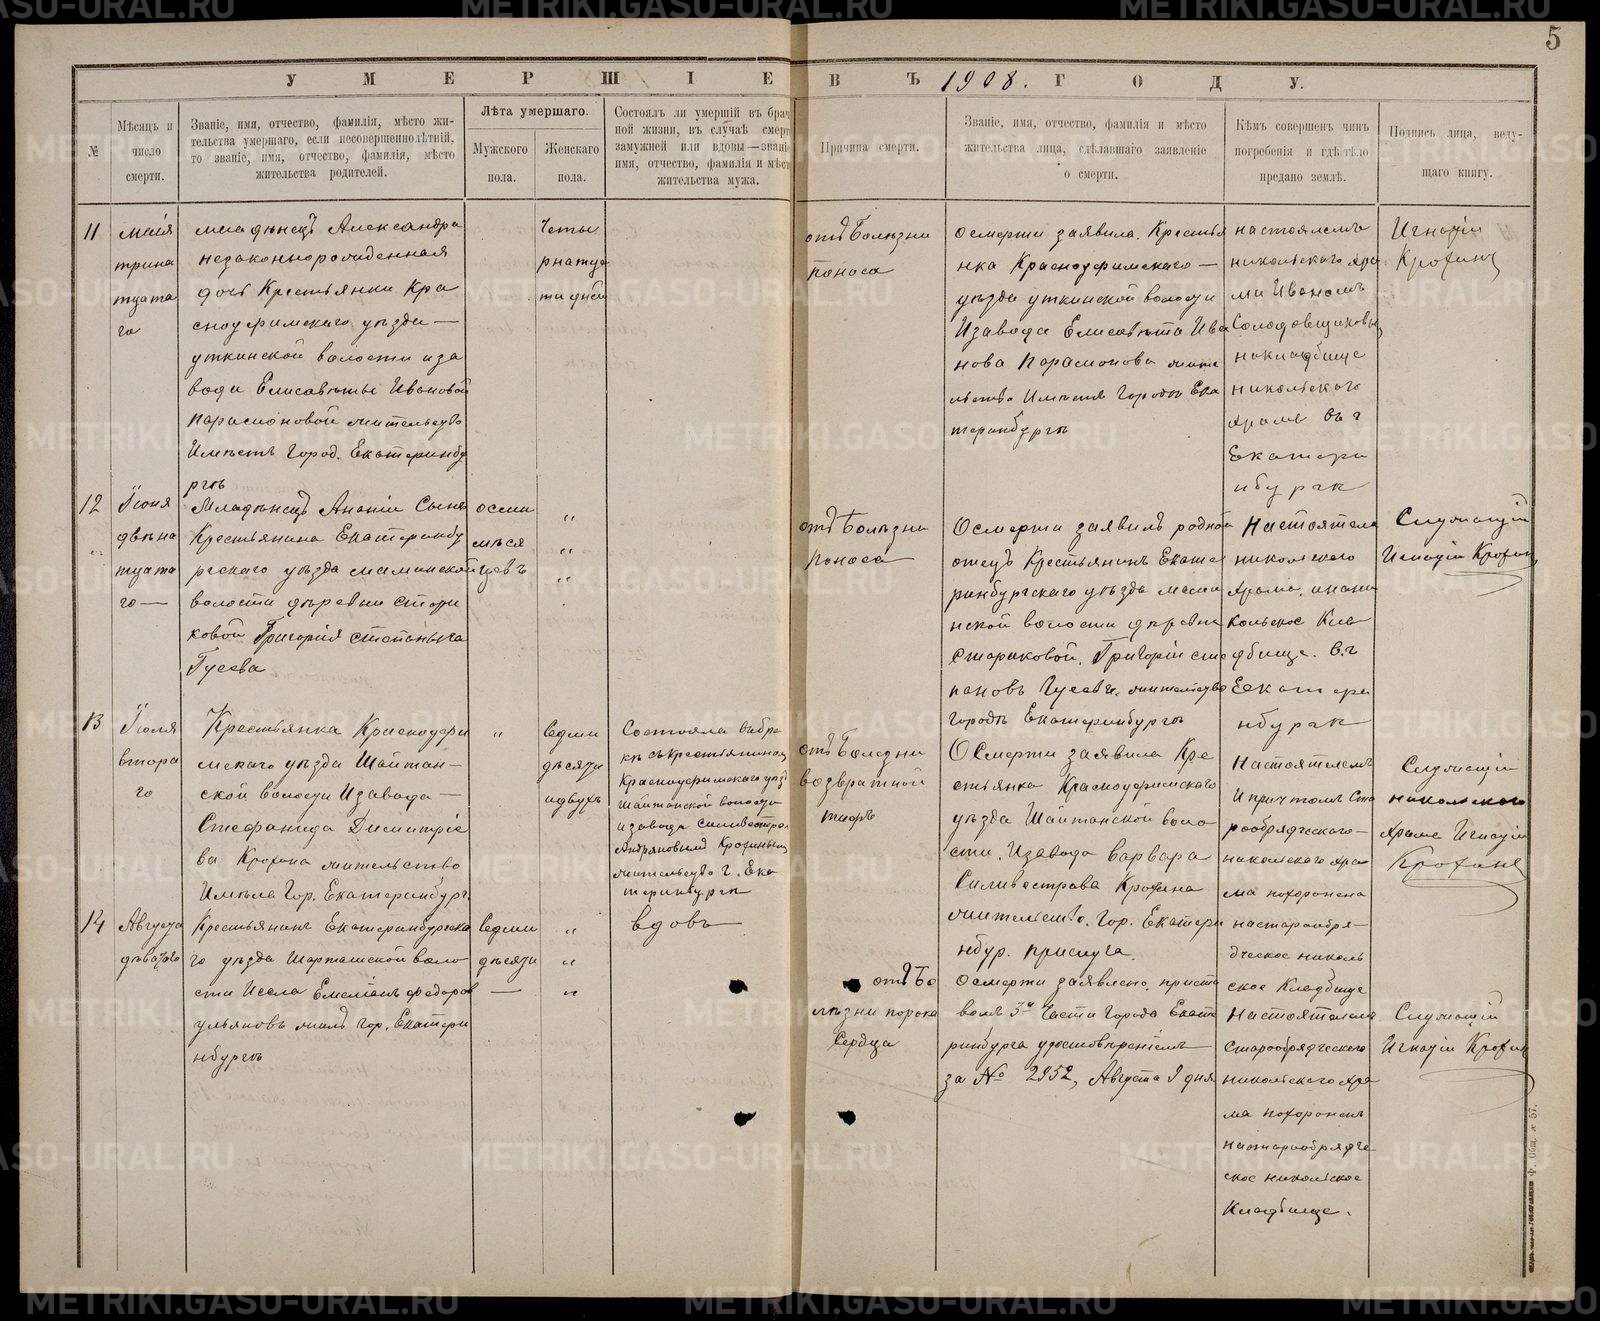 5
УМЕРШІЕ ВЪ 1908. ГОДУ.
№
Мѣсяцъ и
число
смерти.
Званіе, имя, отчество, фамилія, мѣсто жи-
тельства умершаго, если несовершеннолѣтній,
то званіе, имя, отчество, фамилія, мѣсто
жительства родителей.
Лѣта умершаго.
Мужского
пола.
Женскаго
пола.
Состоялъ ли умершій въ брач
ной жизни, въ случаѣ смерт
замужней или вдовы—званіе
имя, отчество, фамилія и мѣст
жительства мужа.
Причина смерти.
Званіе, имя, отчество, фамилія и мѣсто
жительства лица, сдѣлавшаго заявленіе
о смерти.
Кѣмъ совершенъ чинъ
погребенія и гдѣ тѣло
предано землѣ.
Подпись лица, веду-
щаго книгу.
11
маія
трина
тцата
го
младѣнецъ Александра
незаконнорожденная
дочь Крестьянки Кра
сноуфимскаго уѣзда—
уткинской волости иза
вода Елисавѣты Ивановой
парамоновой жительсво
Имѣетъ Город. Екатеринбу
ргѣ
Четы
рнатца
ти дней
отъ Болѣзни
поноса
осмерти заявила. Крестья
нка Красноуфимскаго—
уѣзда уткинской волости
Изавода Елисавѣта Ива
нова Парамонова жите
льство Имѣетя Городѣ Ека
теринбургѣ
настоялемъ
никольскаго хра
ма Иваномъ
Солодовщиковы
накладбище
никольскаго
храма въ г
Екатери
нбургѣ
Игнатій
Крохинъ
12
Іюня
двѣна
тцата
го—
Младѣнецъ Ананіи Сынъ
Крестьянина Екатеринбу
ргскаго уѣзда маминской
волости дѣревни Стари
ковой Григорія Степаныча
Гусева
осми
мѣся
цевъ
„
„
„
отъ Болѣзни
поноса
Осмерти заявилъ родной
отецъ Крестьянинъ Екате
ринбургскаго уѣзда мами
нской волости дѣревни
Стариковой. Григорій сте
пановъ Гусевъ. жительство
Городѣ Екатеринбургѣ
Настоятела
никольскаго
Храма. нани
кольское Кла
дбище. В.г
Екатери
нбургѣ
Служащій
Игнатіи Крохин
13
Іюля
втора
го
Крестьянка Красноуфи
мскаго уѣзда Шайтан—
ской волости Изавода—
Стефанида Димитріе
ва Крохина жительство
Имѣла Гор. Екатеринбургѣ
„
Седми
дѣсяти
идвухъ
Состояла вабра
кѣ съ крестьяниномъ
Красноуфимскаго уѣзд
Шайтанской волости
изавода Силивестро
Андряновымъ Крохинымъ
жительсво г. Ека
теринбургѣ
отъ Болезни
возвратной
тифѣ
Осмерти заявила Кре
стьянка Красноуфимскаго
уѣзда Шайтанской воло
сти, Изавода Варвара
Силивестрова Крохина
жительство. Гор. Екатери
нбур. прислуга.
Настоятелемъ
И притчомъ Ста
рообрядческаго—
никольскаго хра
ма похоронена
настарообря—
дческое николь
ское Кладбище
Служащій
никольского
храма Игнатіи
Крохинъ
14
Августа
дѣвятого
Крестьянинъ Екатеринбургска
го уѣзда Шарташской воло
сти Исела Емеліянъ Федоров
ульяновъ жилъ гор. Екатери
нбургѣ
Седми
дѣсяти
—
„
„
„
вдовъ
отъ Бо
лѣзни порока
Сердца
Осмерти заявлено. приста
вомъ 3й Части Города Екате
ринбурга удостовѣреніемъ
за № 2952, Августа 9 дня
Настоятелемъ
старообрядческаго
никольскаго хра
ма похороненъ
настарообрядче—
ское никольское
Кладбище.
Служащій
Игнатіи Крохин
Ф. Общ. № 57.
METRIKI.GASO-URAL.RU